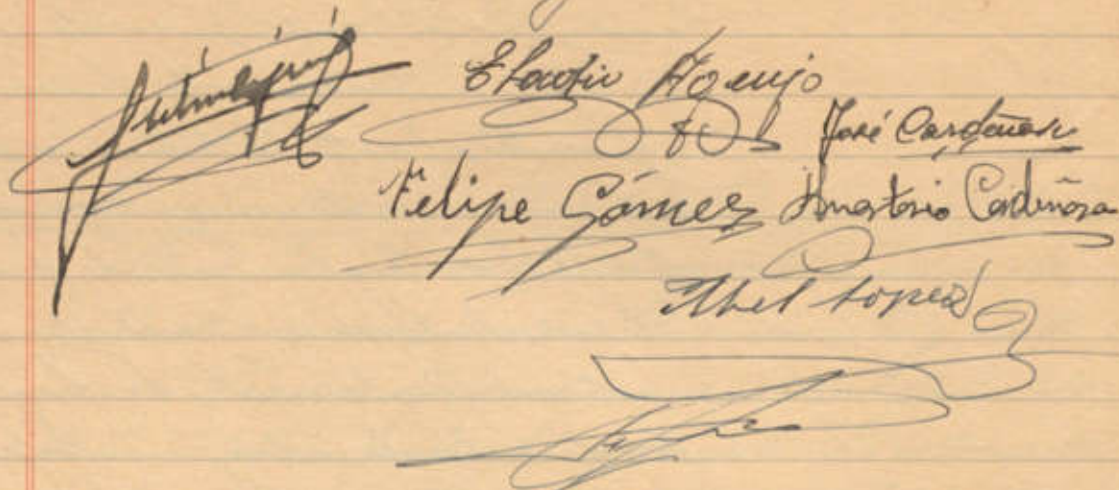 Eladio Araujo
José Cardeñosa
Felipe Gómez Anastasio Cardeñosa
Abel Lopez